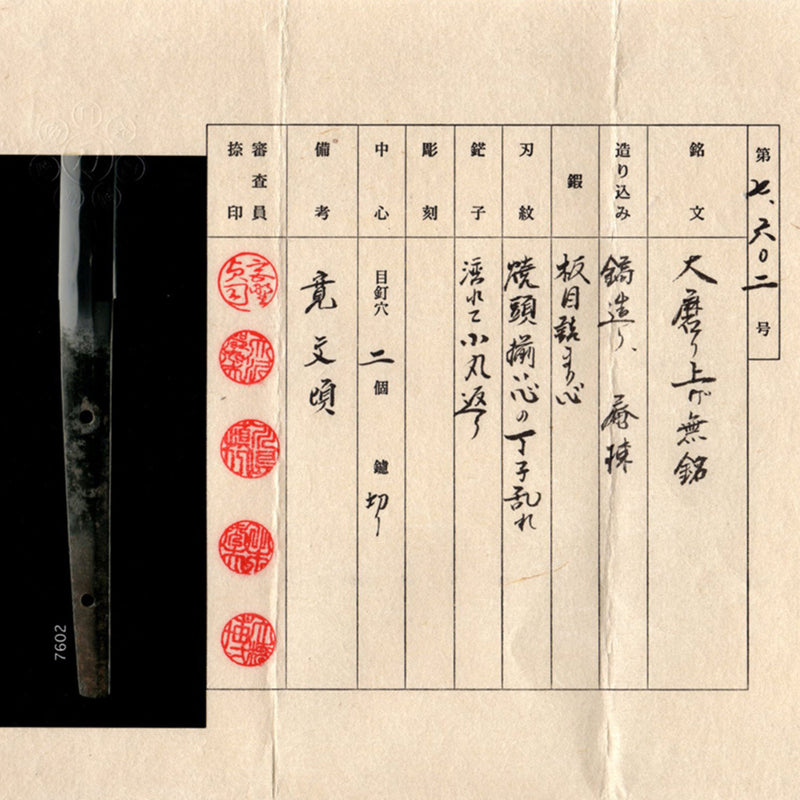 第七、六〇二号
銘文
大磨り上げ無銘
造り込み
鎬造り、庵棟
鍛
板目詰まり心
刃紋
焼頭揃い心の丁子乱れ
鋩子
湾れて小丸返り
彫刻
中心
目釘穴 二個 鑢 切り
備考
寛文頃
審査員
捺印
7602